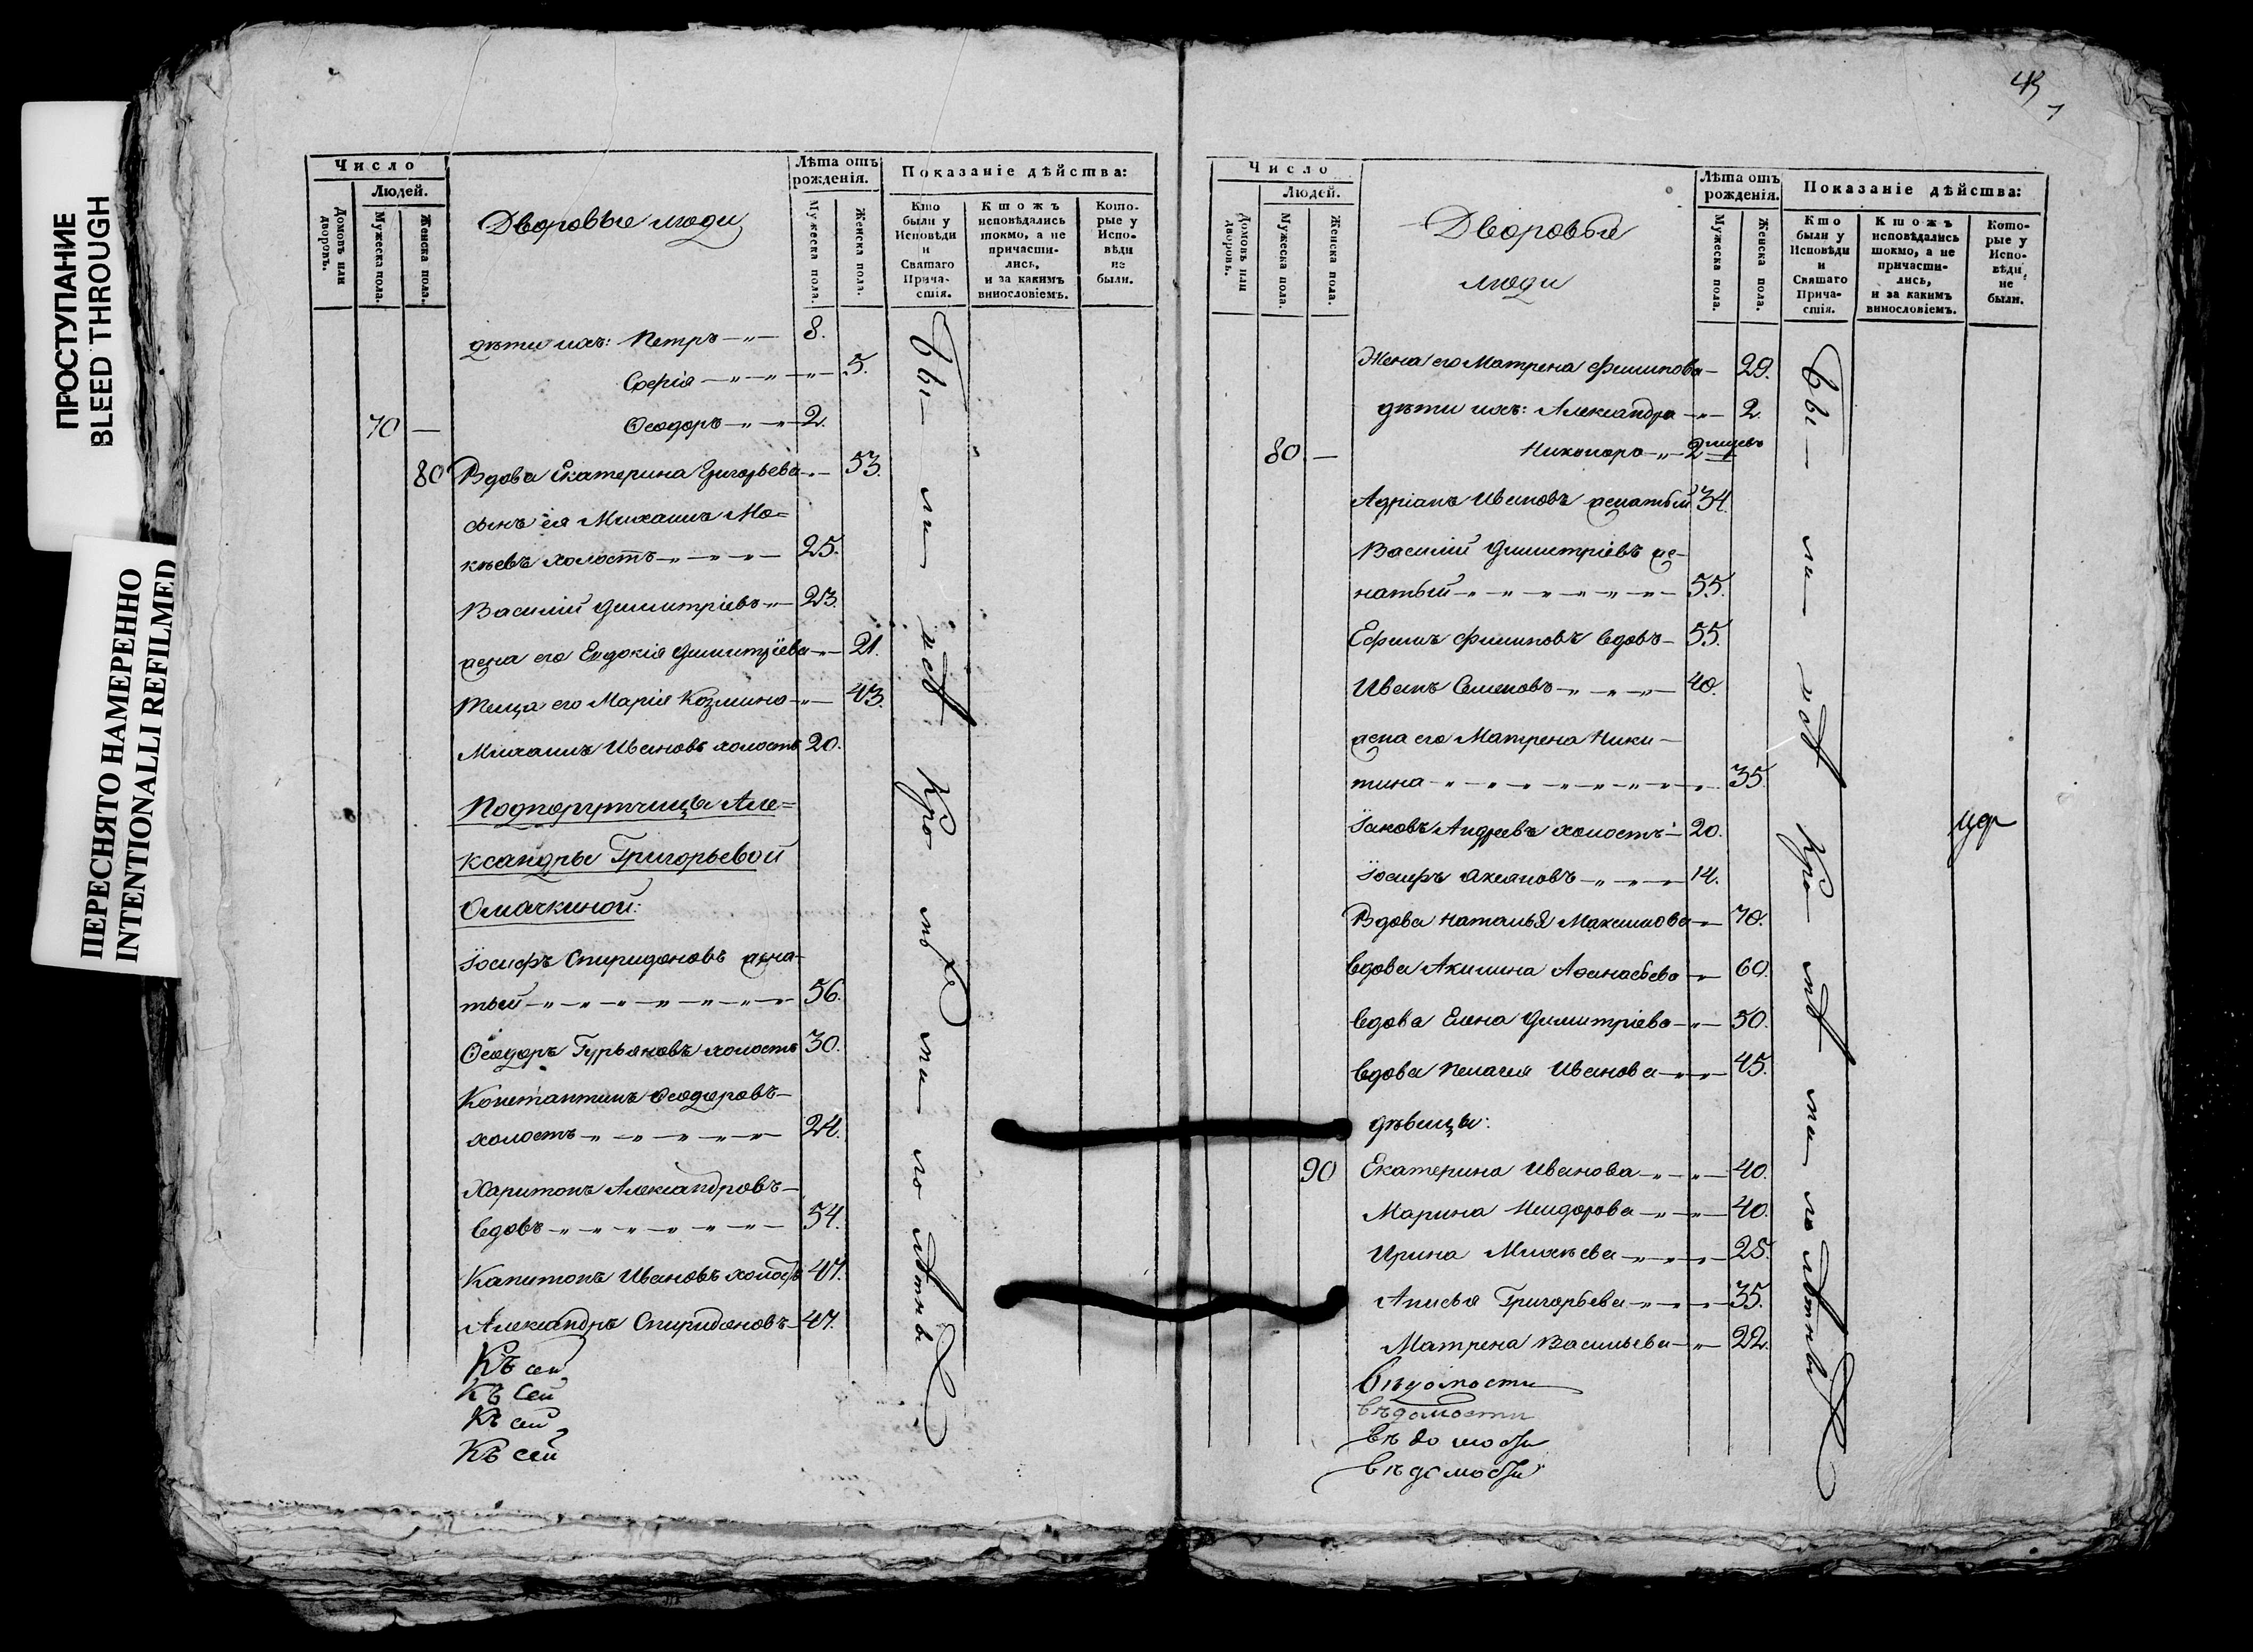 ПРОСТУПАНИЕ
BLEED THROUGH
ПЕРЕСНЯТО НАМЕРЕННО
INTENTIONALLI REFILMED
Число
Людей.
Домовъ или дворовъ.
Мужеска пола.
Женска пола.
Дворовые люди
Лѣта отъ рожденія.
Мужеска пола.
Женска пола.
Показаніе дѣйства:
Кто были у Исповѣди и Святаго Причастія.
Ктожъ исповѣдались токмо, а не причастились, и за какимъ винословіемъ.
Которые у Исповѣди не были.
дѣти ихъ: Петръ 8.
Софія 5.
70 — Ѳеодоръ 2.
80 Вдова Екатерина Григорьева 53.
сынъ ея Михаилъ Мо=
кѣевъ холостъ 25.
Василій Димитріевъ 23.
жена его Евдокія Димитріева 21.
теща его Марія Козмина 43.
Михаилъ Ивановъ холостъ 20.
Подпорутчицы Але=
ксандры Григорьевой
Іосифъ Спиридоновъ жена-
тый 56.
Ѳеодоръ Гурьяновъ холостъ 30.
Константинъ Ѳеодоровъ-
холостъ 24.
Харитонъ Александровъ-
вдовъ 54.
Капитонъ Ивановъ холостъ 47.
Александръ Спиридоновъ 47.
Къ сей
Къ Сей
Къ сей
Къ сей
Бы— ли— всѣ кро— мѣ ма— ло лѣтны
Число
Людей.
Домовъ или дворовъ.
Мужеска пола.
Женска пола.
Дворовые
люди
Лѣта отъ рожденія.
Мужеска пола.
Женска пола.
Показаніе дѣйства:
Кто были у Исповѣди и Святаго Причастія.
Ктожъ исповѣдались токмо, а не причастились, и за какимъ винословіемъ.
Которые у Исповѣди не были.
Жена его Матрена Филипова 29.
дѣти ихъ: Александра 2.
80. — Никоноръ 2
Адріанъ Ивановъ женатый 34.
Василій Димитріевъ же-
натый 55.
Ефимъ Филиповъ вдовъ 55.
Иванъ Семеновъ 40.
жена его Матрена Ники-
тина 35.
Іаковъ Андреевъ холостъ 20.
Іосифъ 14.
Вдова Наталья Максимова 70.
вдова Акилина Аѳанасьева 60.
вдова Елена Димитріева 50.
вдова Пелагея Иванова 45.
дѣвицы:
90 Екатерина Иванова 40.
Марина Исидорова 40.
Ирина Михѣева 25.
Анисья Григорьева 35.
Матрена Васильева 22.
вѣдомости
вѣдомости
вѣдомости
вѣдомости
Бы— ли— всѣ кро— мѣ ма— ло лѣтны